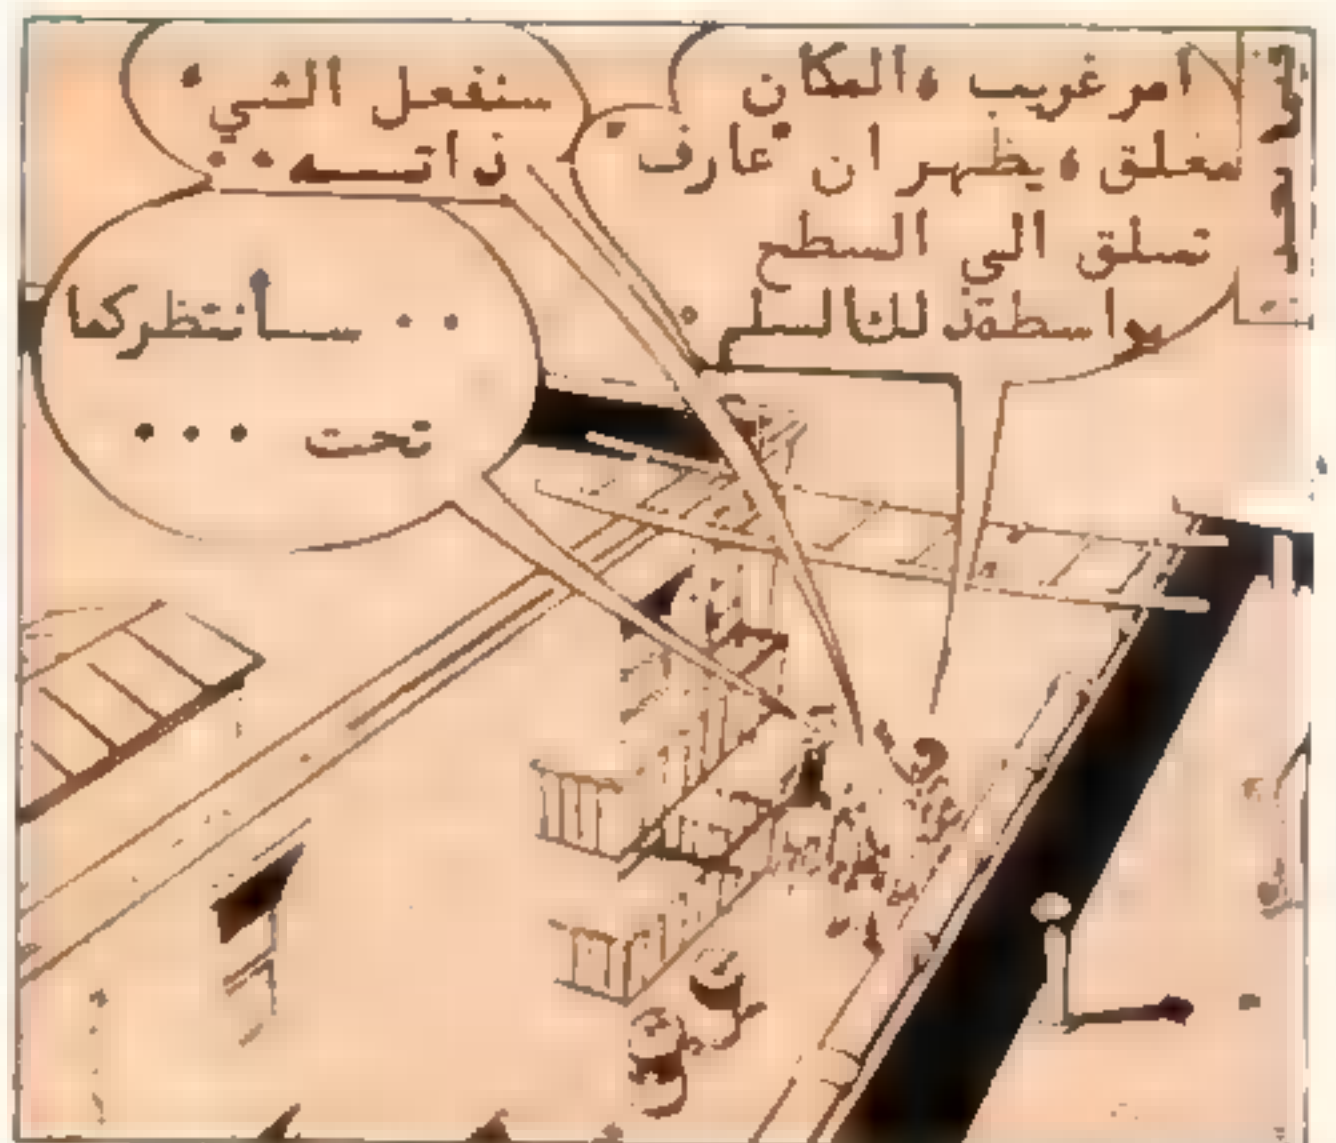 امر غريب ، المكان
مغلق ، يظهر ان "عارف"
تسلق الى السطح
بواسطة ذلك السلم .
سنفعل الشيء
ذاتــه ..
.. ســأنتظركما
تحت ...